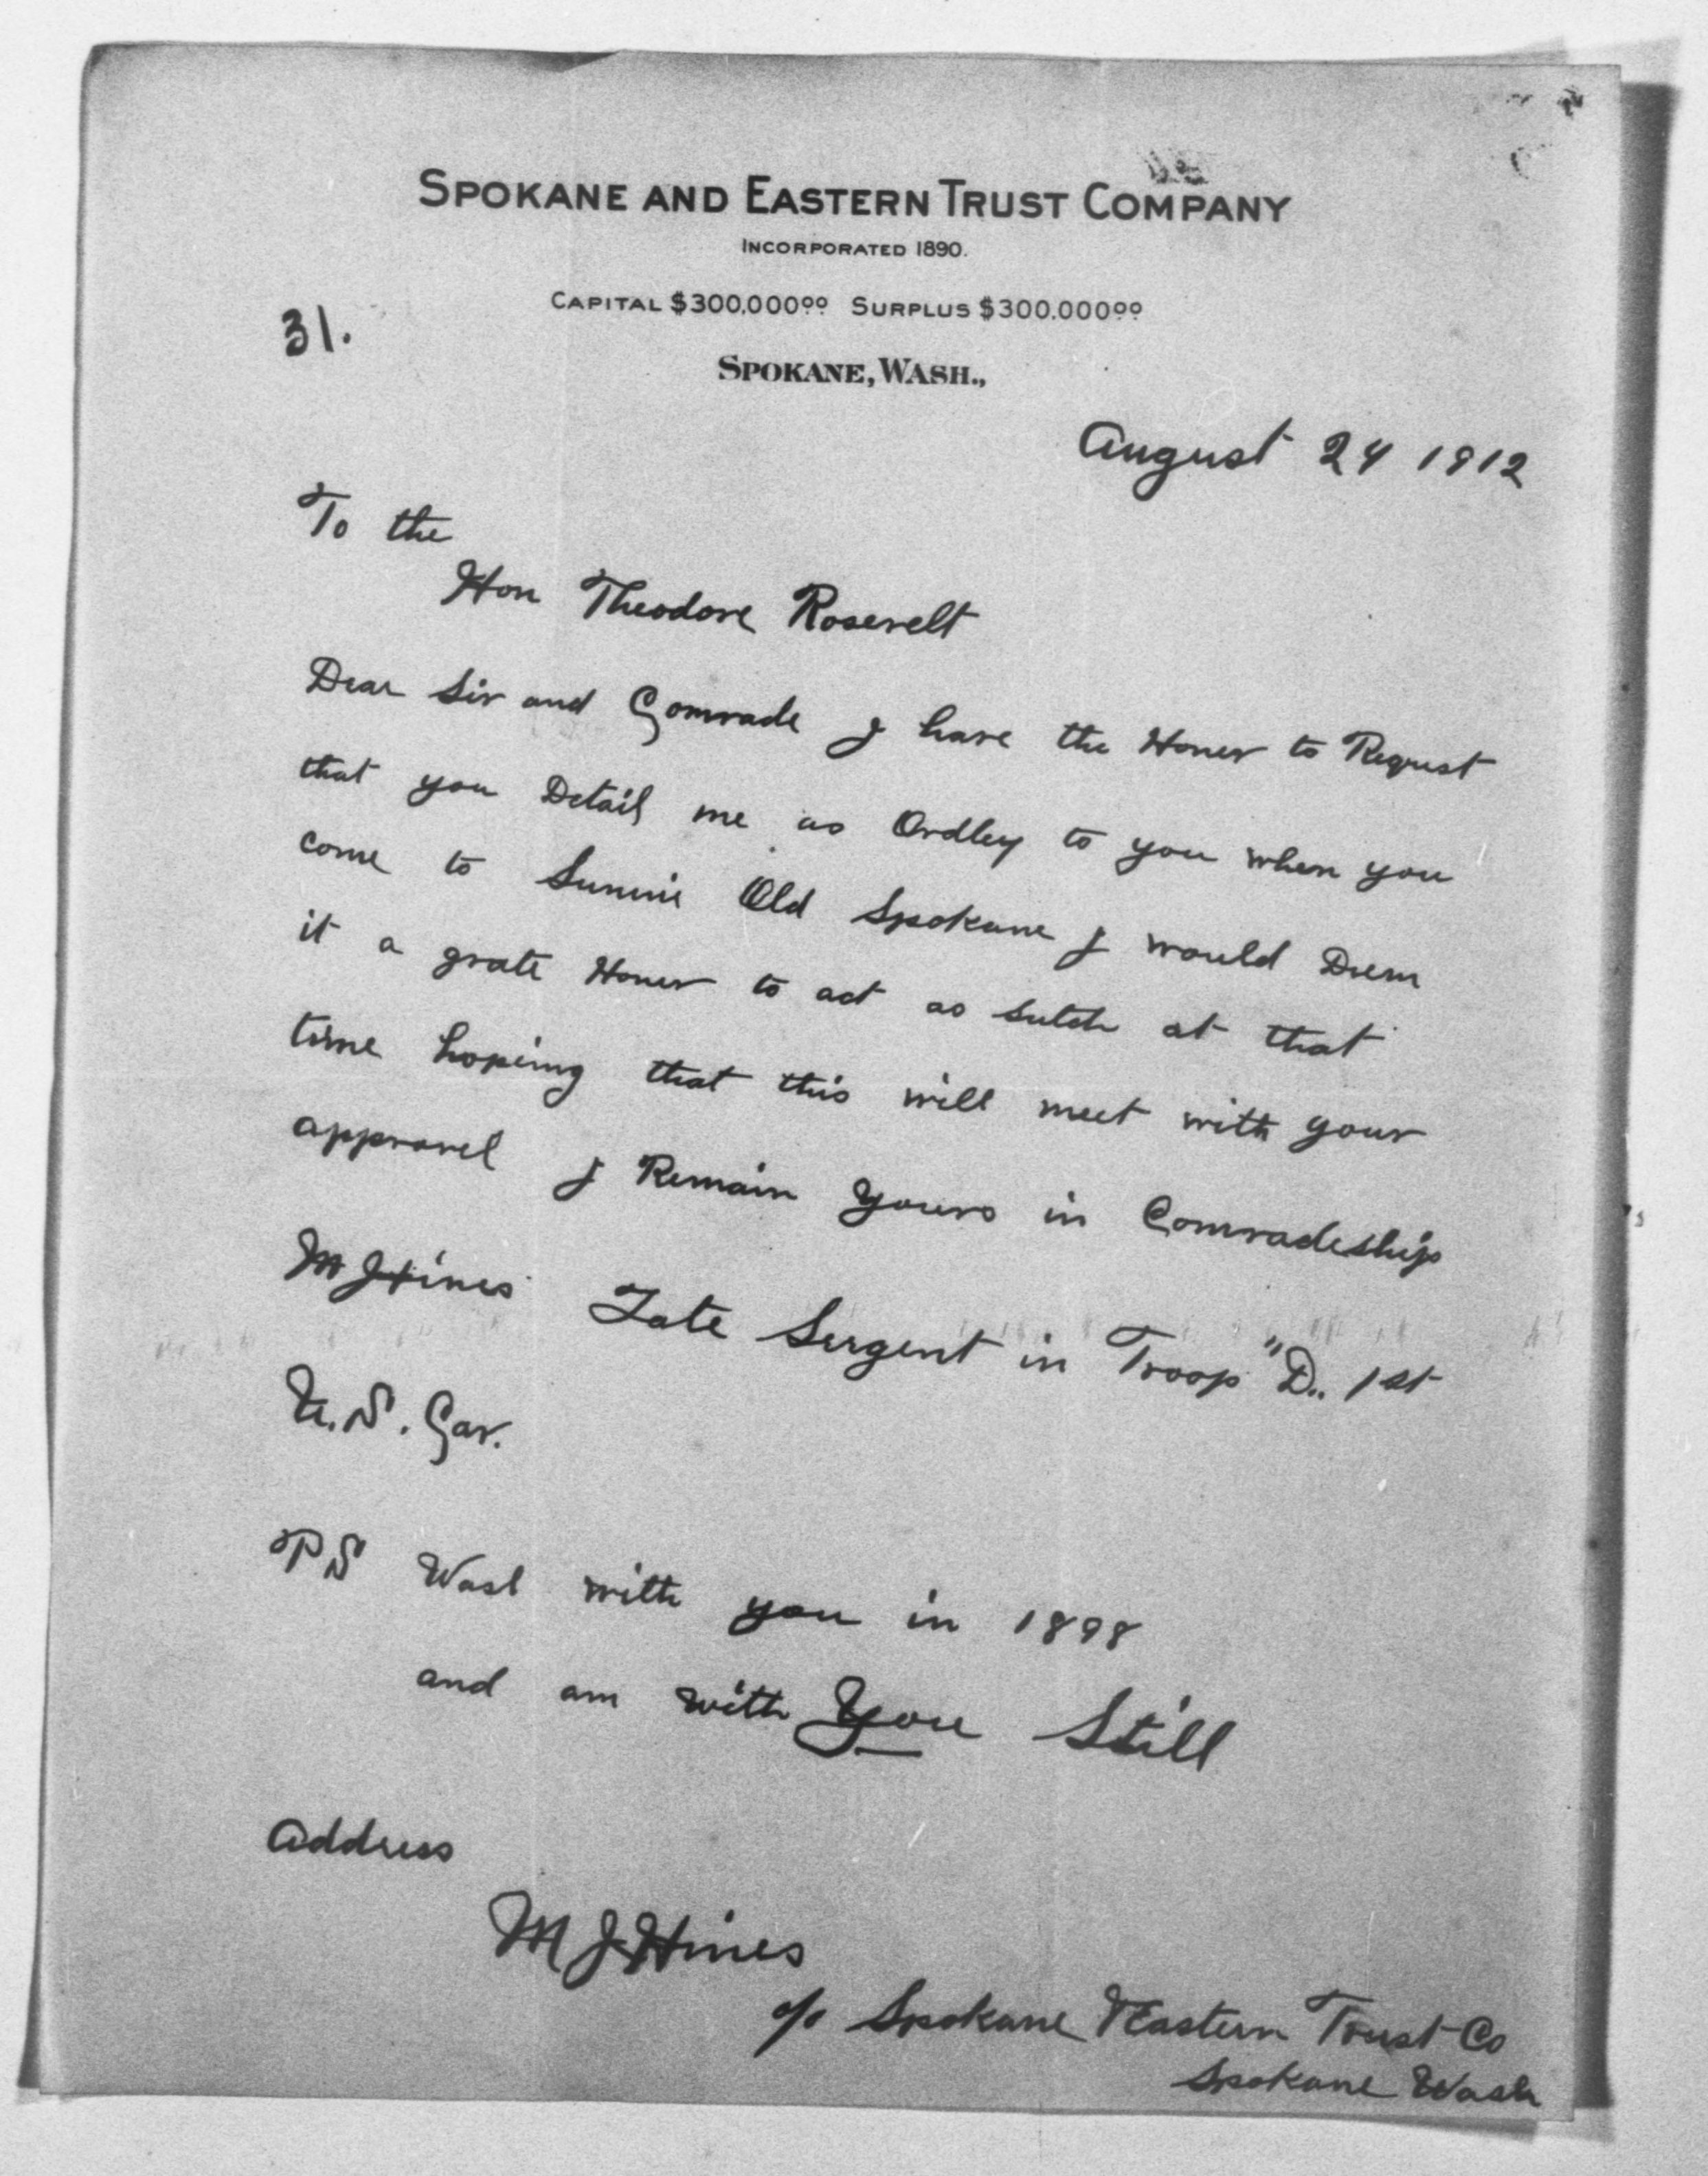 SPOKANE AND EASTERN TRUST COMPANY
INCORPORATED 1890.
CAPITAL $300,000.00 SURPLUS $300,000.00
31.
SPOKANE, WASH.,
August 24 1912
To the
Hon Theodore Rosevelt
Dear Sir and Comrade I have the Honer to Request
that you Detail me as Ordley to you when you
come to Sunnie Old Spokane I would Deem
it a grate Honer to act as sutch at that
time hopeing that this will meet with your
approvel I Remain Yours in Comradeship
M J Hines Late Sergent in Troop "D" 1st
U.S. Cav.
PS Was with you in 1898
and am with You Still
Address
M J Hines
c/o Spokane & Eastern Trust Co
Spokane Wash